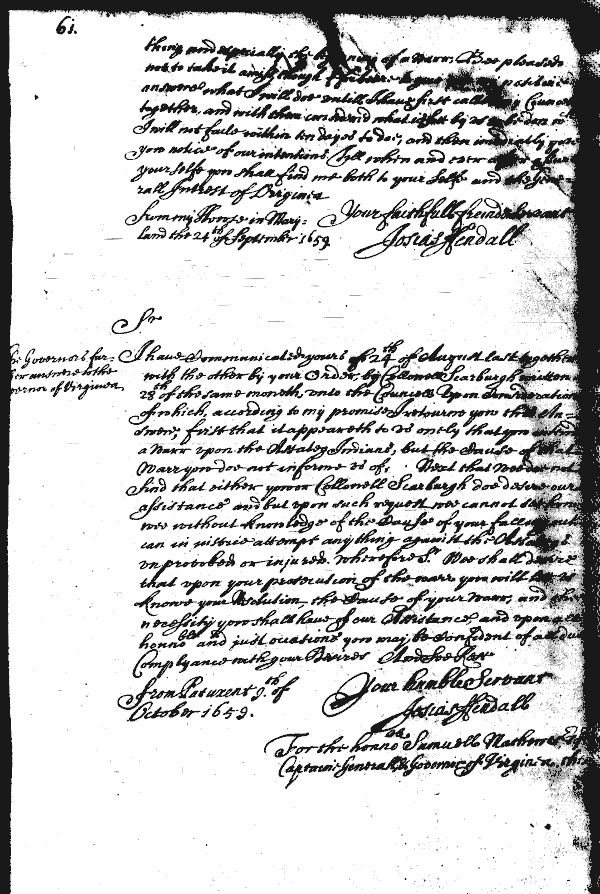 61.
thing and especially the beginning of a warr; Bee pleased
not to take it amiss though I forbeare to give
answere what I will doe untill I have first called a Councell
together, and with them considered what ought by us to bee done
I will not faile within ten dayes to doe, and then imediatly give
you notice of our intentions Till when and ever after
your selfe you shall find me both to your selfe and the Gene=
rall Interest of Virginia
Your faithfull freind & Servant
Josias Fendall
from my House in Mary=
land the 24th of September 1659
Sr
The Governors fur=
ther answere to the
Governor of Virginea
I have Communicated yours of 24th of August last together
with the other by your Order, by Collonell Scarburgh written
28th of the same month, unto the Councell upon Consideration
of which, according to my promise I returne you this An=
swere, first that it appeareth to us onely that you intend
a warr upon the Assateag Indians, but the Cause of that
Warr you doe not informe us of, Next that wee doe not
find that either you or Collonell Scarburgh doe desire our
assistance and but upon such request wee cannot
wee without knowledge of the Cause of your falling out
can in justice attempt any thing against the
unprovoked or injured. Wherefore Sr Wee shall desire
that upon your prosecution of the warr you will let us
knowe your Resolution, the Cause of your Warr, and
necessity you shall have of our Assistance, and upon all
honnoble and just ocations you may be Confident of all due
Complyance with your Desires And soe Rest
Your humble Servant
Josias Fendall
from Patuxent 9th of
October 1659.
For the honnoble Samuell Mathewes Esqr
Captaine Generall & Governor of Virginea this